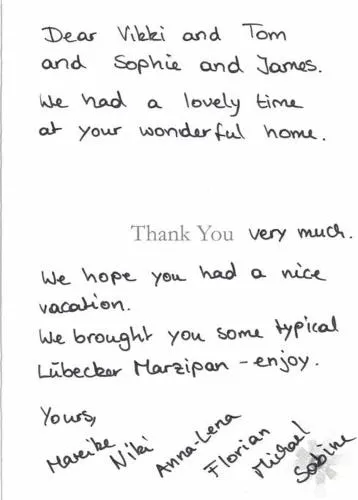 Dear Vikki and Tom
and Sophie and James.
We had a lovely time
at your wonderful home.
Thank You very much.
We hope you had a nice
vacation.
We brought you some typical
Lübecker Marzipan - enjoy.
Yours,
Mareike Niki Anna-Lena Florian Michael Sabine